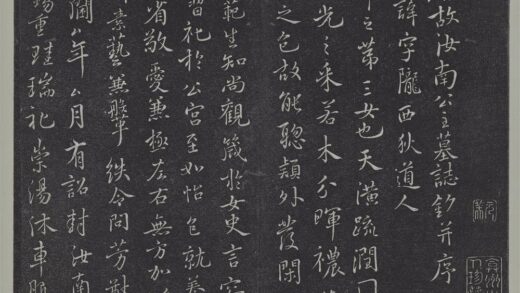 故汝南公主墓誌銘并序
諱字隴西狄道人
之第三女也天潢疏潤
光之采若木分暉穠
之色故能聰穎外發閑
範生知尚觀箴於女史言容
習礼於公宮至如怡色就養
省敬愛兼極左右無方加
素藝兼鞶紩令問芳猷
閫厶年厶月有詔封汝南
錫重珪瑞礼崇湯沐車服